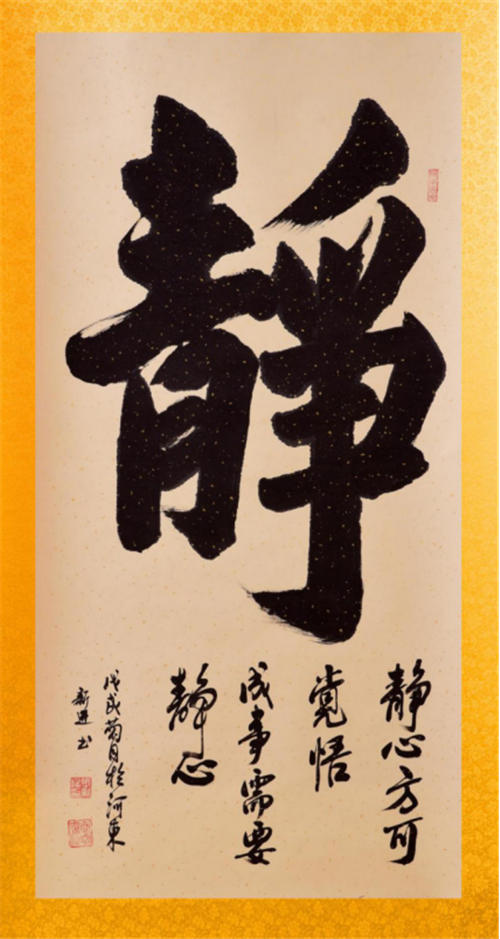 靜
靜心方可
覺悟
成事需要
靜心
戊戌菊月於河東
新進书